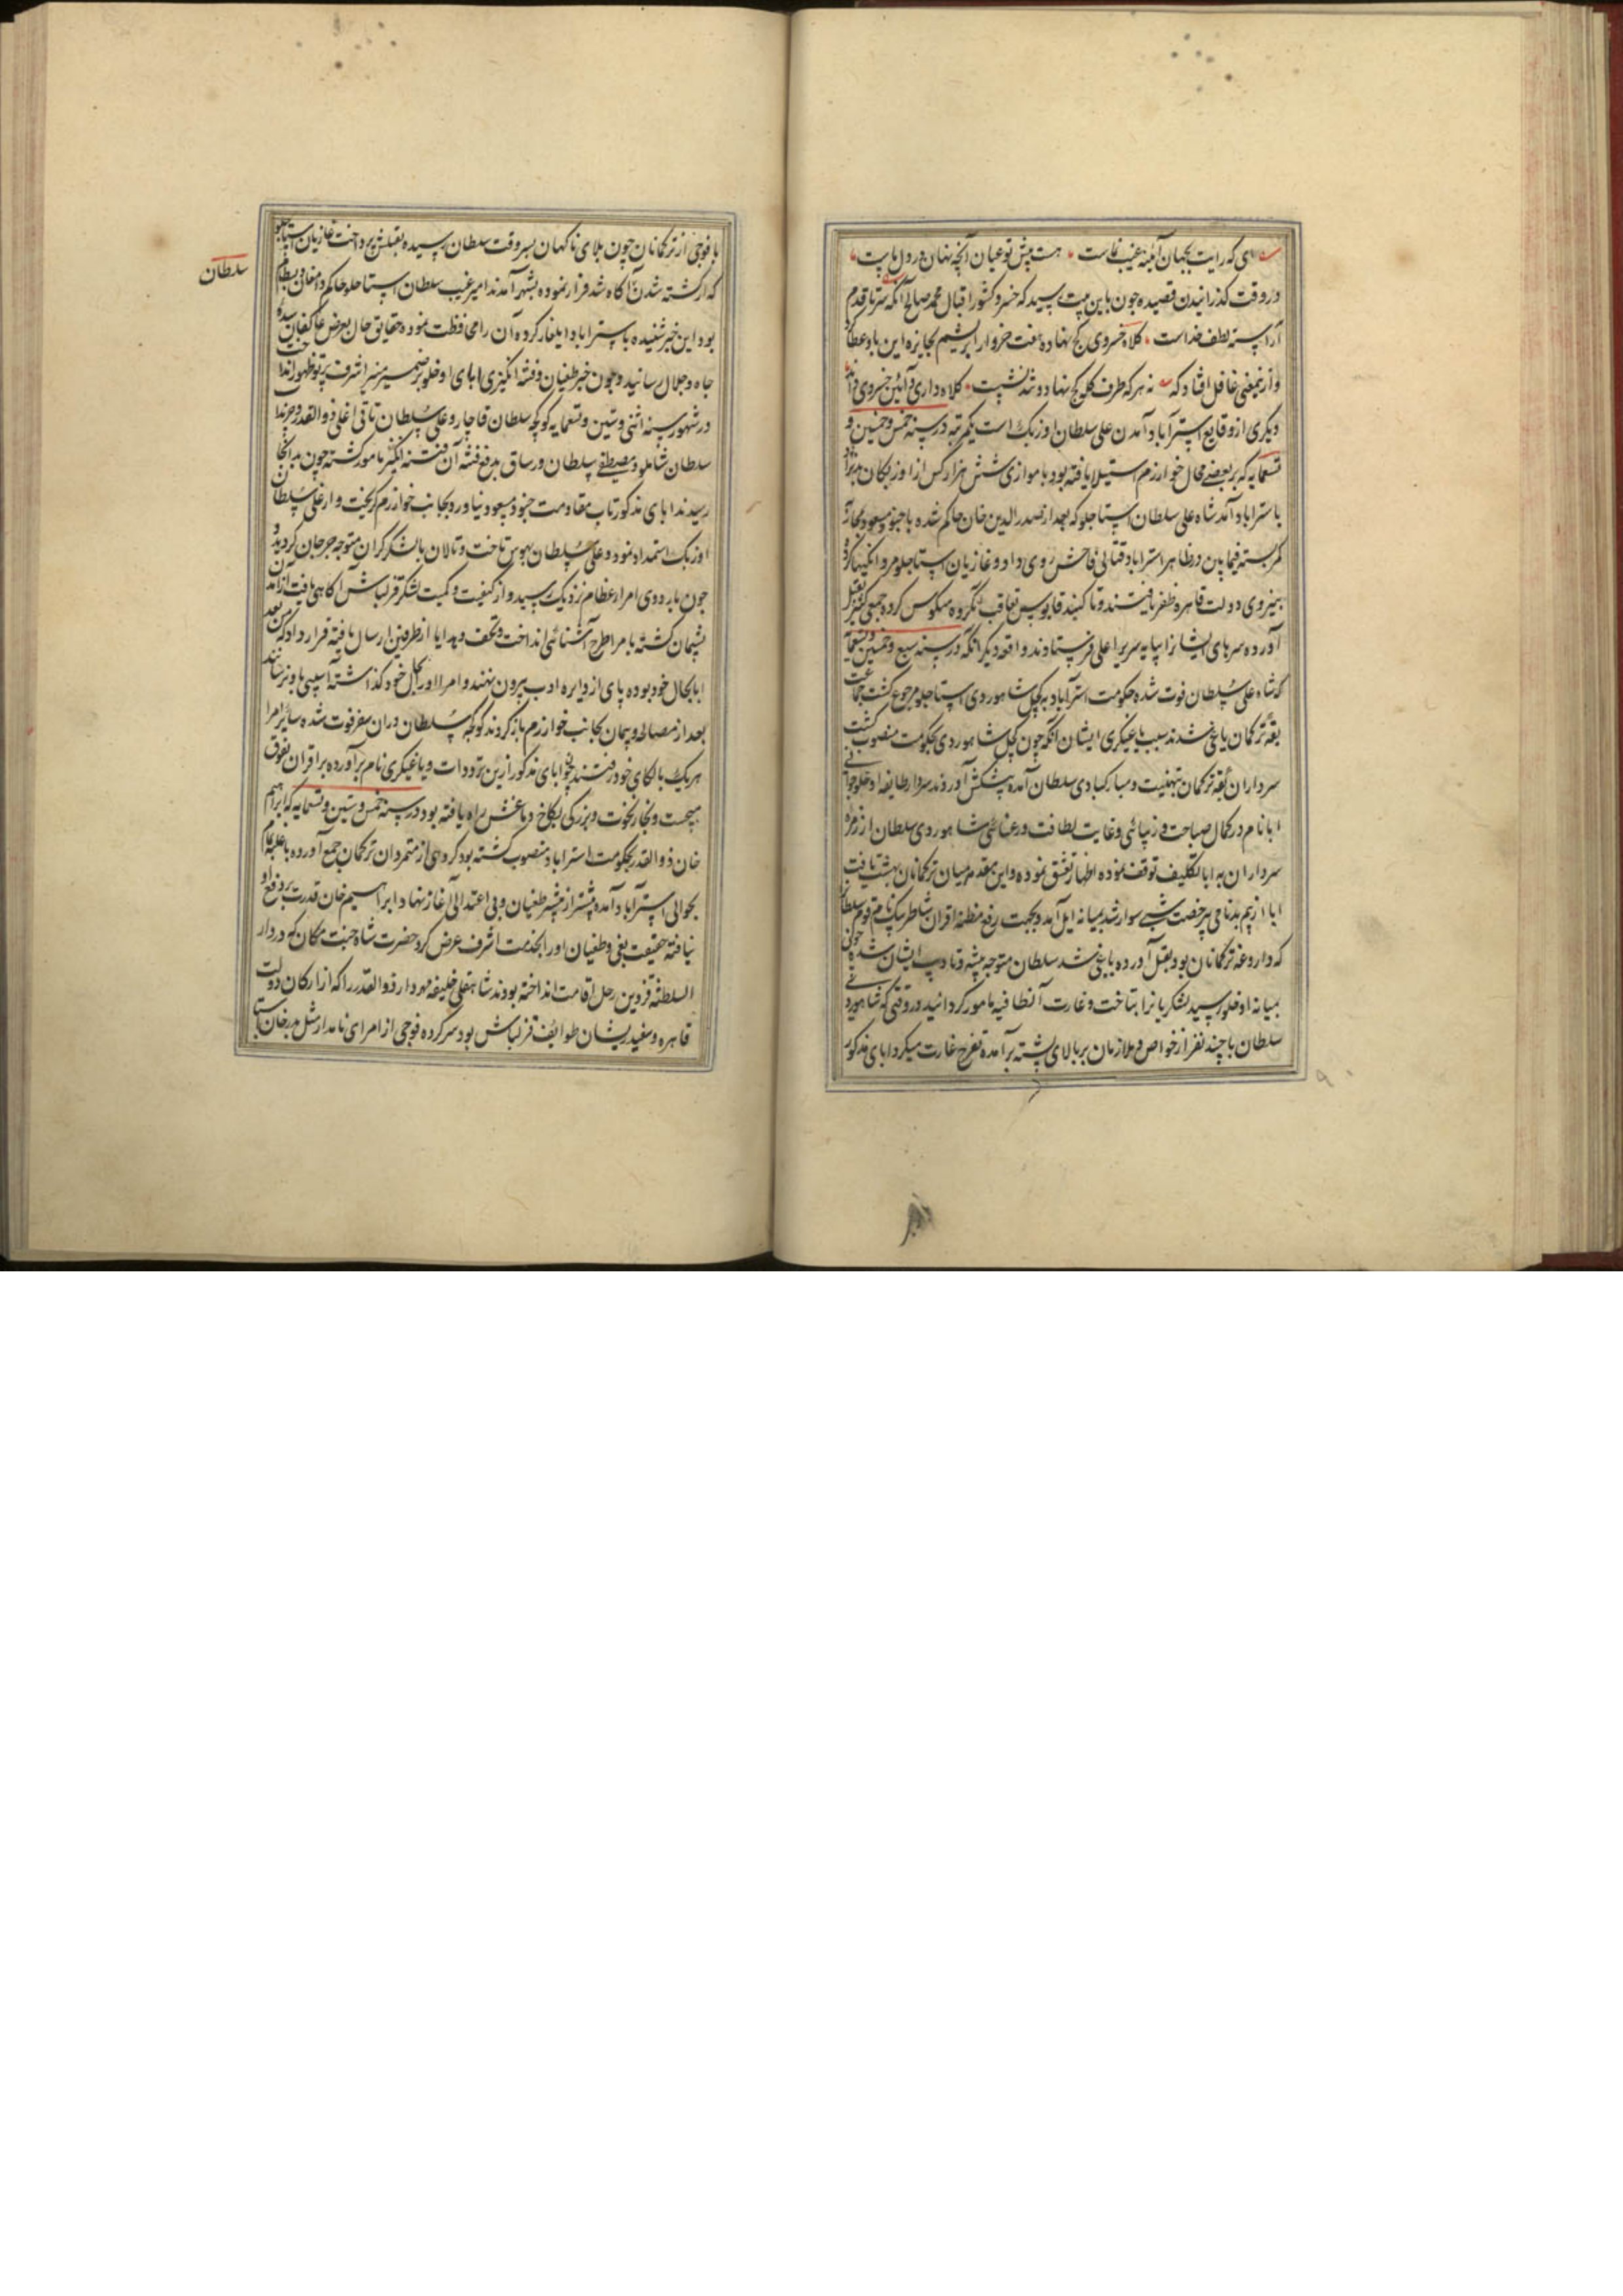 ای که رایت بجهان آئینه غیب نماست هست پیش تو عیان آنچه نهان در دل ماست
در وقت گذرانیدن قصیده چون باین بیت رسید که خسرو کشور اقبال محمد صالح آنکه سر تا قدم
آراسته لطف خداست کلاه خسروی کج نهاده هفت خروار ابریشم بجایزه این باو عطا کرد
و ازینمعنی غافل افتاد که نه هر که طرف کله کج نهاد و تند نشست کلاه داری و آئین سروری داند
دیگری از وقایع استرآباد آمدن علی سلطان اوزبک است یکمرتبه در سنه خمس و خمسین و
تسعمایه که بر بعضی محال خوارزم استیلا یافته بود با موازی شش هزار کس از اوزبکان
باستراباد آمد شاه علی سلطان استاجلو که بعد از صدرالدین خان حاکم شده با جنود مسعود بمحاربه
کمر بسته فیمابین در ظاهر استراباد قتالی فاحش روی داد و غازیان استاجلو مردانگیها کرده
بنیروی دولت قاهره ظفر یافتند و تا گنبد قابوس تعاقب آنگروه منکوس کرده جمعی کثیر بقتل
آورده سرهای ایشانرا بپایه سریر اعلی فرستادند واقعه دیگر آنکه در سنه سبع و خمسین و تسعمایه
که شاه علی سلطان فوت شده حکومت استرآباد به کچل شاهوردی استاجلو مرجوع گشت جماعت
یقه ترکمان یاغی شدند سبب یاغیگری ایشان آنکه چون کچل شاهوردی بحکومت منصوب گشت
سرداران یقه ترکمان بتهنیت و مبارکبادی سلطان آمده پیشکش آوردند سردار طایفه اوخلو جوانی
ابا نام در کمال صباحت و زیبائی و غایت لطافت و رعنائی شاهوردی سلطان از زمره
سرداران به ابا تکلیف توقف نموده اظهار تعشق نموده و این مقدمه میان ترکمانان بهشت یافت
ابا از بیم بدنامی بیرخصت شبی سوار شد بمیانه ایل آمد و بجهت رفع مظنه اقران شاطر بیک نام قوم سلطان
که داروغه ترکمانان بود بقتل آورده یاغی شد سلطان متوجه تنبیه و تادیب ایشان شده چون
بمیانه اوخلو رسید لشکریانرا بتاخت و غارت آنطایفه مامور گردانید در وقتی که شاهوردی
سلطان با چند نفر از خواص و ملازمان بر بالای پشته برآمده تفرج غارت میکرد ابای مذکور
با فوجی از ترکمانان چون بلای ناگهان بسروقت سلطان رسیده بقتلش پرداخت غازیان استاجلو
که از کشته شدن آن آگاه شد فرار نموده بشهر آمدند امیر غیب سلطان استاجلو حاکم دامغان و بسطام
بود این خبر شنیده باستراباد ایلغار کرده آن را محافظت نموده حقایق حال بعرض عاکفان سده
جاه و جلال رسانید و چون خبر طغیان و فتنه انگیزی ابای اوخلو بر ضمیر منیر اشرف پرتو ظهور انداخت
در شهور سنه اثنی و ستین و تسعمایه کوکچه سلطان قاجار و علی سلطان تاتی اغلی ذوالقدر و چرنداب
سلطان شاملو و مصطفی سلطان ورساق بدفع فتنه آن فتنه انگیز مامور گشته چون بدانجا
رسیدند ابای مذکور تاب مقاومت جنود مسعود نیاورد بجانب خوارزم گریخت و از علی سلطان
اوزبک استمداد نمود و علی سلطان بهوس تاخت و تالان با لشکر گران متوجه جرجان گردید و
چون باردوی امراء عظام نزدیک رسید و از کیفیت و کمیت لشکر قزلباش آگاهی یافت از آمدن
پشیمان گشته با مرا طرح آشنائی انداخت و تحف و هدایا از طرفین ارسال یافته قرار داد که من بعد
ابا بحال خود بوده پای از دایره ادب بیرون ننهند و امرا او را بحال خود گذاشته آسیبی باو نرسانند
بعد از مصالحه و پیمان بجانب خوارزم بازگردند کوکجه سلطان دران سفر فوت شده سایر امرا
هر یک بالکای خود رفتند چون ابای مذکور ازین ترددات و یاغیگری نام برآورده بر اقران تفوق
میجست و بخار نخوت و بزرگی بکاخ دماغش راه یافته بود در سنه خمس و ستین و تسعمایه که ابراهیم
خان ذوالقدر بحکومت استراباد منصوب گشته بود گروهی از متمردان ترکمان جمع آورده
بحوالی استرآباد آمده پیشتر از پیشتر طغیان و بی اعتدالی آغاز نهاد ابراهیم خان قدرت بر دفع او
نیافته حقیقت بغی و طغیان او را بخدمت اشرف عرض کرد حضرت شاه جنت مکان که در دار
السلطنه قزوین رحل اقامت انداخته بودند شاهقلی خلیفه مهردار ذوالقدر را که از ارکان دولت
قاهره و سفید ریشان طوایف قزلباش بود سرکرده فوجی از امرای نامدار مثل بدر خان استاجلو
سلطان